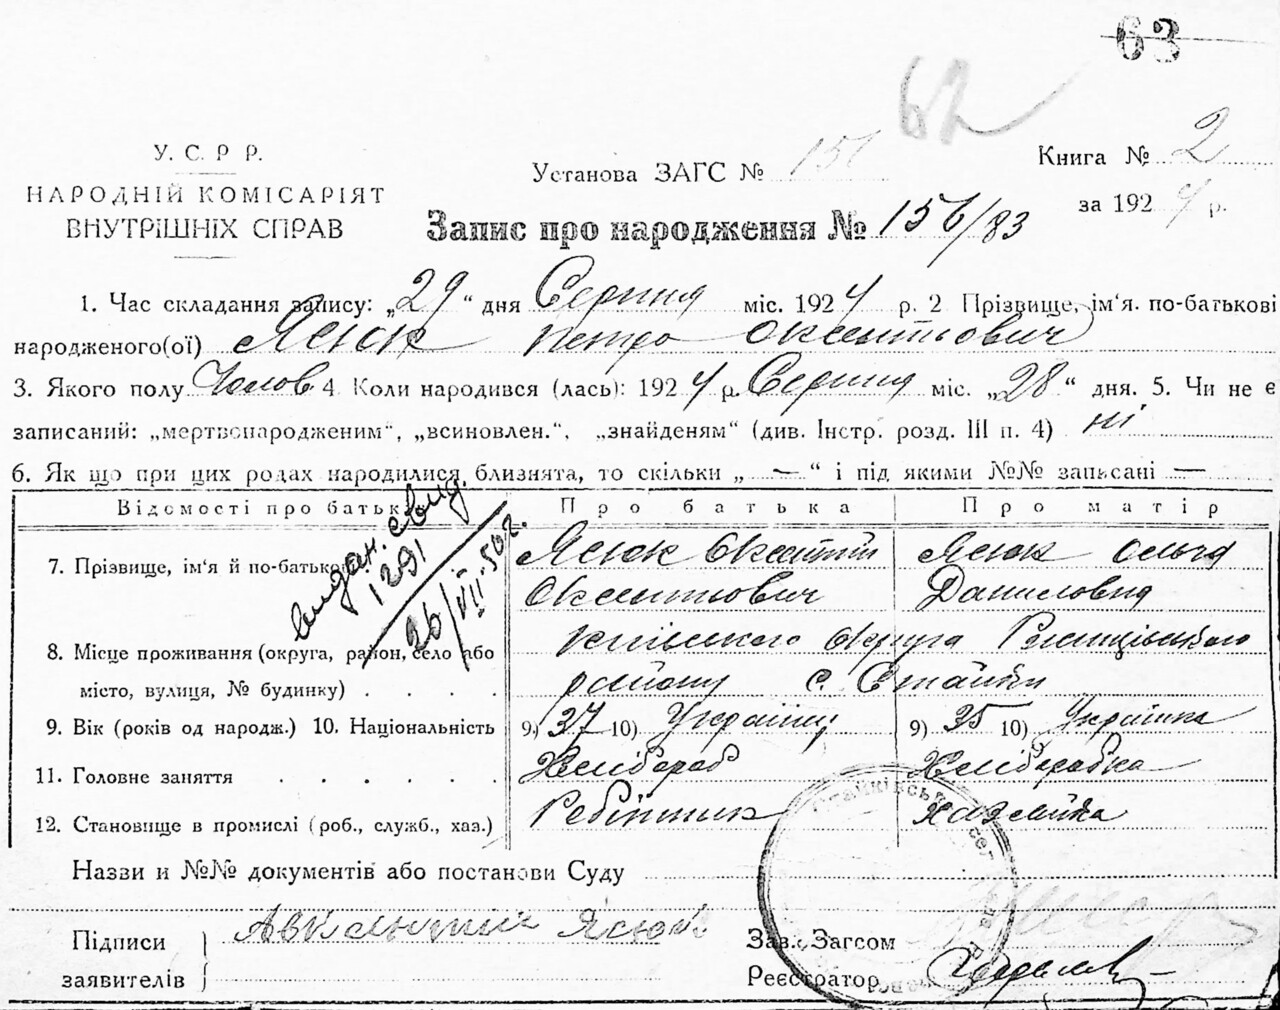 63
62
У. С. Р Р.
НАРОДНІЙ КОМІСАРІЯТ
ВНУТРІШНІХ СПРАВ
Установа ЗАГС № 156
Книга № 2
за 1924 р.
Запис про народження № 156/83
1. Час складання запису: „29“ дня Серпня міс. 1924 р. 2 Прізвище, ім‘я. по-батькові
народженого(ої) Ясюк Петро Оксентьович
3. Якого полу Чолов 4. Коли народився (лась): 1924 р. Серпня міс. „28“ дня. 5. Чи не є
записаний: „мертвонародженим“, „всиновлен.“, „знайденям“ (див. Інстр. розд. III п. 4) ні
6. Як що при цих родах народилися близнята, то скільки „—“ і під якими №№ записані —
Відомості про батьків Про батька Про матір
видан. свид.
1291
26/VII-50г.
7. Прізвище, ім‘я й по-батькові Ясюк Оксентій Ясюк Ольга
Оксентьович Даниловна
8. Місце проживання (округа, район, село або Київського Округа Ржищівського
місто, вулиця, № будинку) . . . . району с. Стайки
9. Вік (років од народж.) 10. Національність 9) 37 10) Українец 9) 35 10) Українка
11. Головне заняття . . . . . . Хлібороб Хліборобка
12. Становище в промислі (роб., служб., хаз.) Робітник Хазяйка
Назви и №№ документів або постанови Суду
Підписи
заявителів
Авксентий Ясюк
Зав. Загсом
Реєстратор